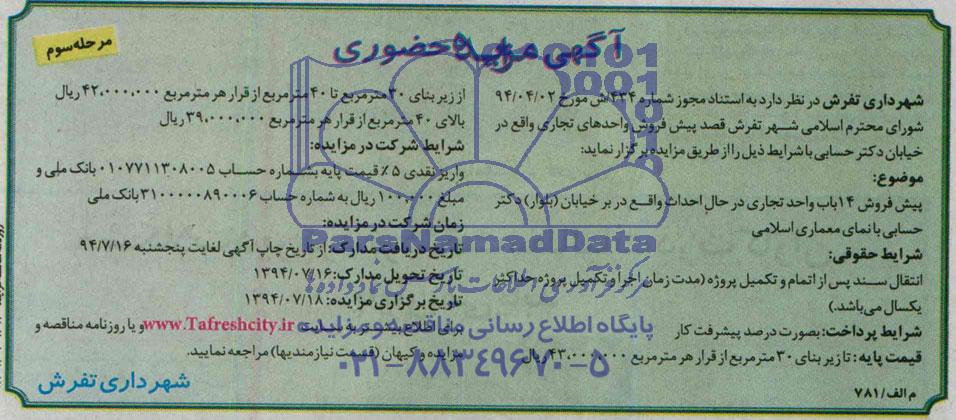 مرحله سوم
آگهی مزایده حضوری
شهرداری تفرش در نظر دارد به استناد مجوز شماره ۴۳۴/ش مورخ ۹۴/۰۴/۰۲
شورای محترم اسلامی شهر تفرش قصد پیش فروش واحدهای تجاری واقع در
خیابان دکتر حسابی با شرایط ذیل را از طریق مزایده برگزار نماید:
موضوع:
پیش فروش ۱۴ باب واحد تجاری در حال احداث واقع در بر خیابان (بلوار) دکتر
حسابی با نمای معماری اسلامی
شرایط حقوقی:
انتقال سند پس از اتمام و تکمیل پروژه (مدت زمان اجرا و تکمیل پروژه حداکثر
یکسال می‌باشد.)
شرایط پرداخت: بصورت درصد پیشرفت کار
قیمت پایه: تا زیر بنای ۳۰ مترمربع از قرار هر مترمربع ۴۳,۰۰۰,۰۰۰ ریال
م الف/۷۸۱
از زیر بنای ۳۰ مترمربع تا ۴۰ مترمربع از قرار هر مترمربع ۴۲,۰۰۰,۰۰۰ ریال
بالای ۴۰ مترمربع از قرار هر مترمربع ۳۹,۰۰۰,۰۰۰ ریال
شرایط شرکت در مزایده:
واریز نقدی ۵٪ قیمت پایه بشماره حساب ۰۱۰۷۷۱۱۳۰۸۰۰۵ بانک ملی و
مبلغ ۱۰۰,۰۰۰ ریال به شماره حساب ۳۱۰۰۰۰۰۸۹۰۰۰۶ بانک ملی
زمان شرکت در مزایده:
تاریخ دریافت مدارک: از تاریخ چاپ آگهی لغایت پنجشنبه ۹۴/۷/۱۶
تاریخ تحویل مدارک: ۱۳۹۴/۰۷/۱۶
تاریخ برگزاری مزایده: ۱۳۹۴/۰۷/۱۸
برای اطلاع بیشتر به سایت www.Tafreshcity.ir و یا روزنامه مناقصه و
مزایده و کیهان (قسمت نیازمندیها) مراجعه نمایید.
شهرداری تفرش
ParsNamadData
پایگاه اطلاع رسانی مناقصه و مزایده
۰۲۱-۸۸۳۴۹۶۷۰-۵